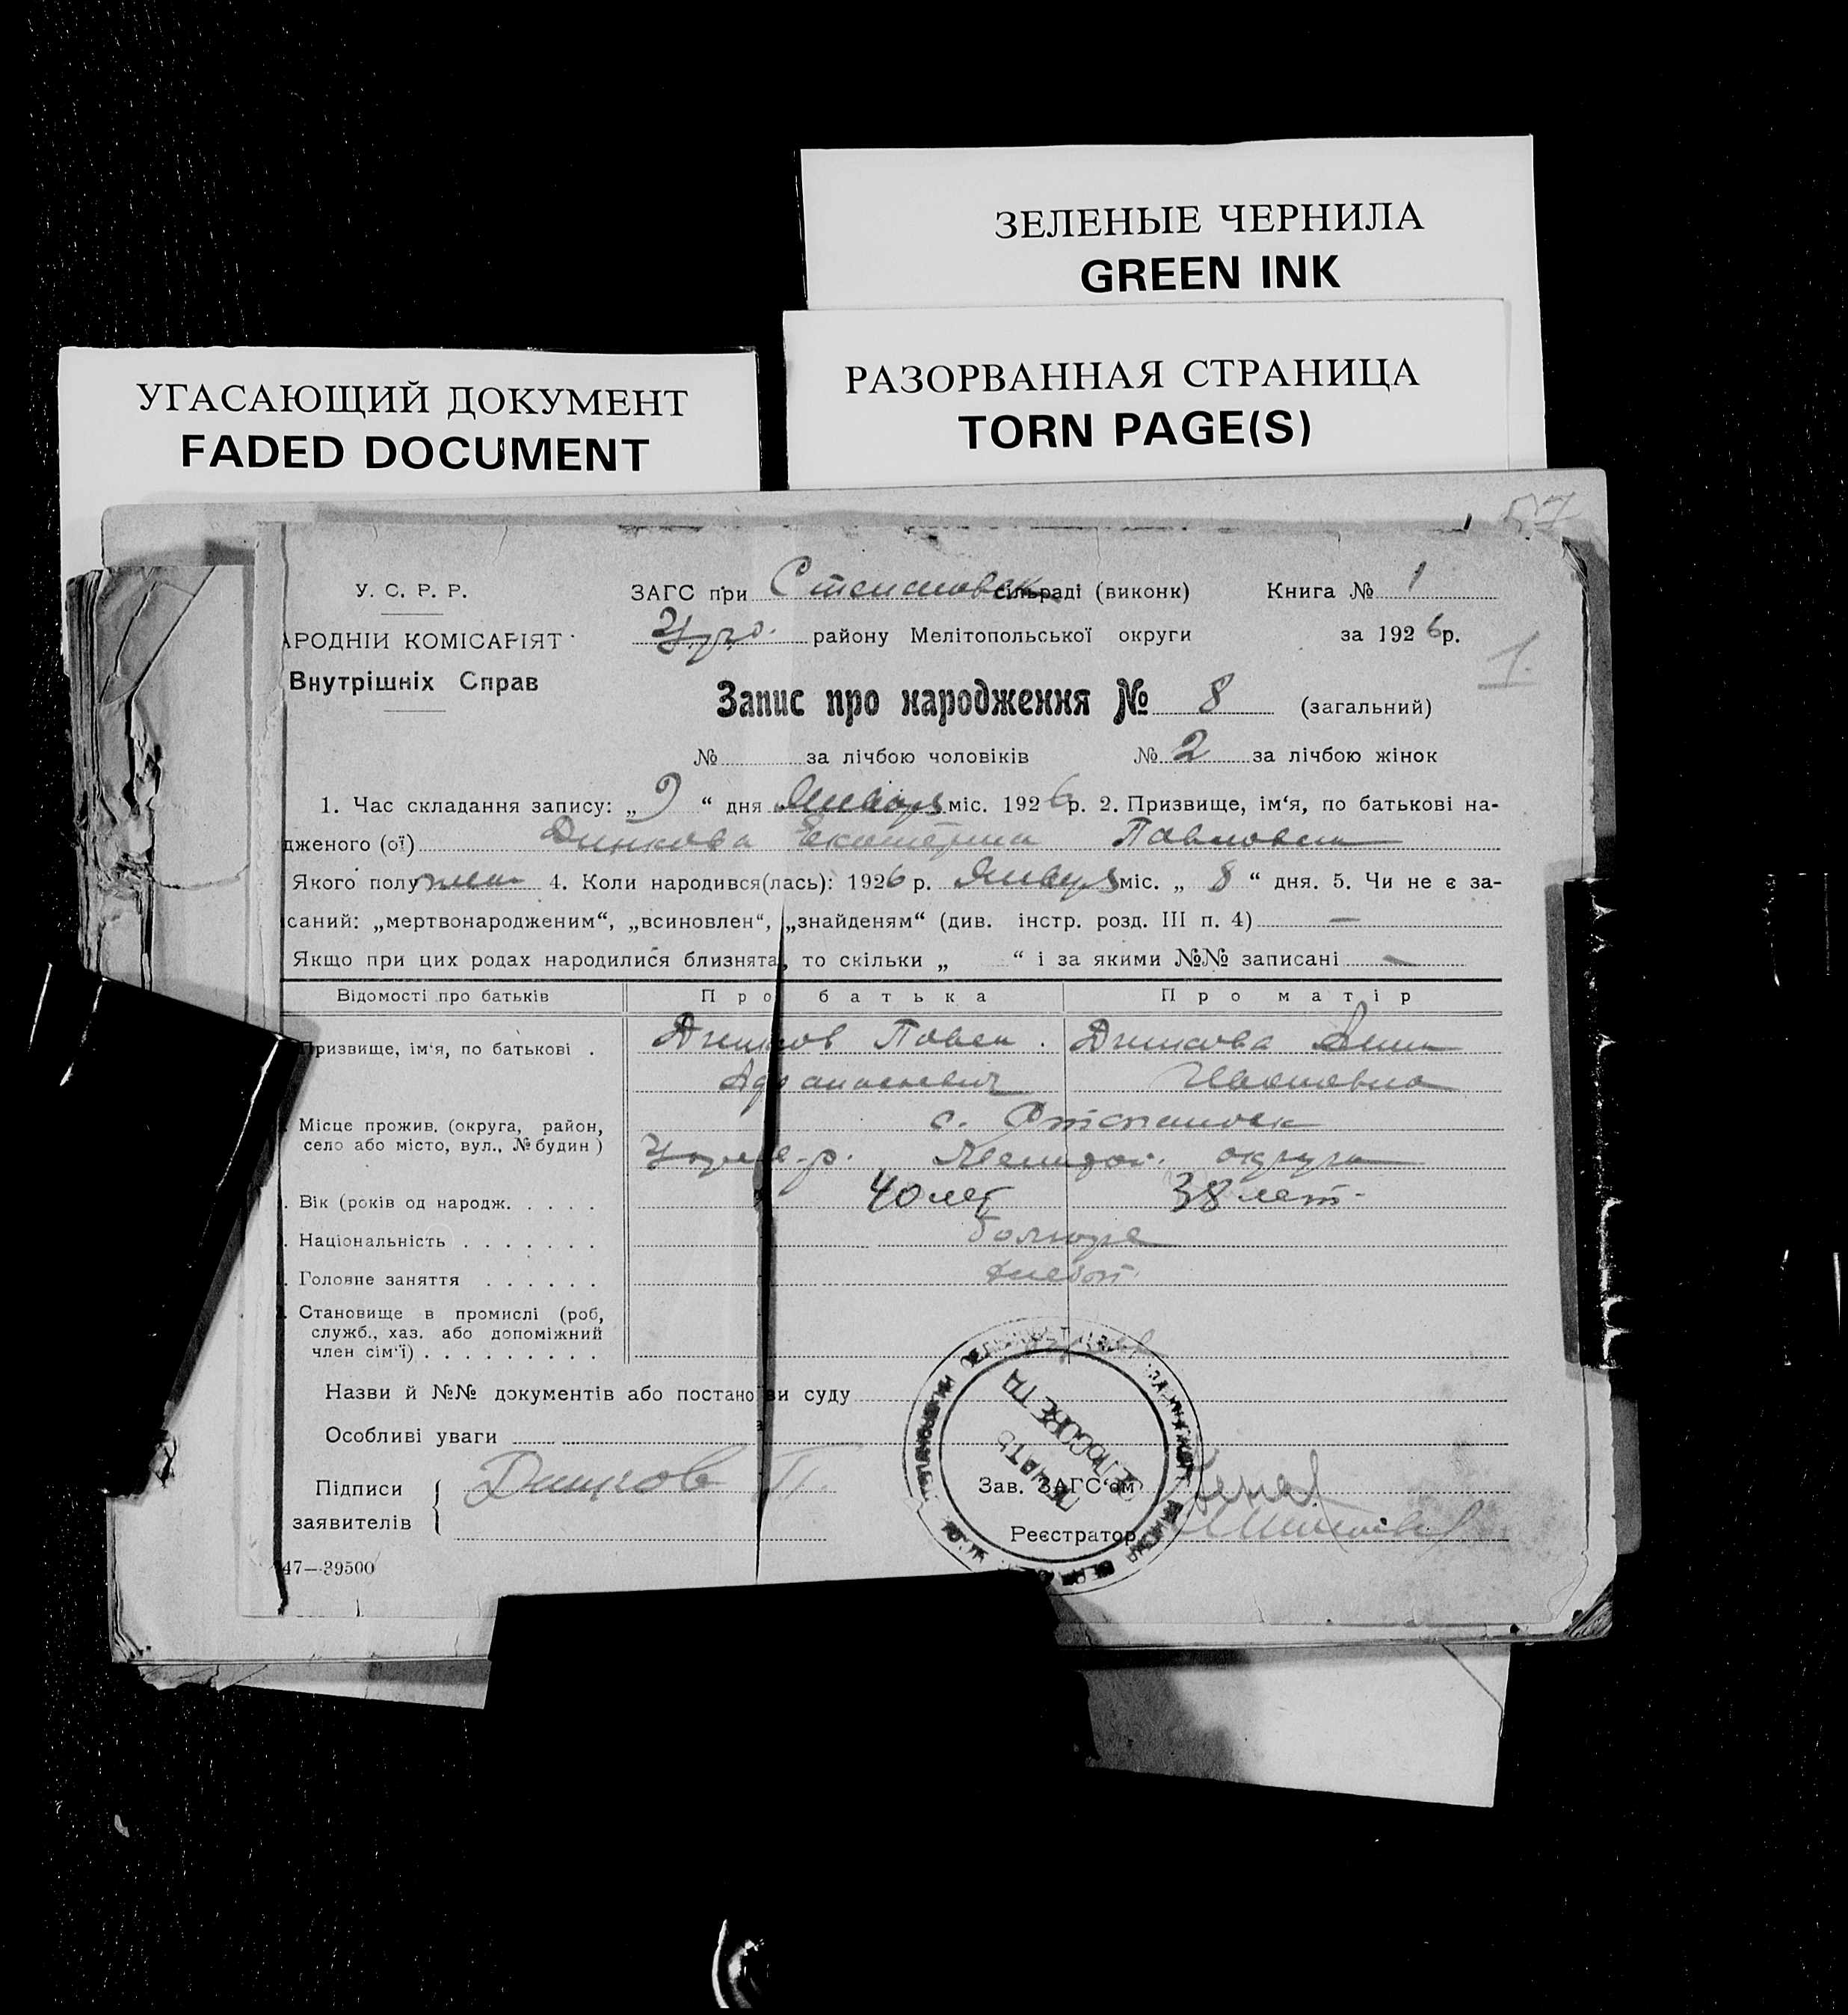 ЗЕЛЕНЫЕ ЧЕРНИЛА
GREEN INK
РАЗОРВАННАЯ СТРАНИЦА
TORN PAGE(S)
УГАСАЮЩИЙ ДОКУМЕНТ
FADED DOCUMENT
У. С. Р. Р. ЗАГС при сільраді (виконк) Книга № 1
АРОДНІЙ КОМІСАРІЯТ району Мелітопольської округи за 1926р.
Внутрішніх Справ
1.
Запис про народження № 8 (загальний)
№ за лічбою чоловіків № 2 за лічбою жінок
1. Час складання запису: „ 9 “ дня Января міс. 1926р. 2. Призвище, ім‘я, по батькові на-
дженого (ої) Динкова Екатерина Павловна
Якого полу жен 4. Коли народився(лась): 1926 р. Января міс. „ 8 “ дня. 5. Чи не є за-
саний: „мертвонародженим“, „всиновлен“, „знайденям“ (див. інстр. розд. III п. 4) —
Якщо при цих родах народилися близнята, то скільки „ “ і за якими №№ записані —
Відомості про батьків Про батька Про матір
Призвище, ім‘я, по батькові . Динков Павел . Динкова Анна
Афанасьевич Ивановна
Місце прожив. (округа, район,
село або місто, вул., № будин )
с.
округи
. Вік (років од народж. . . . . 40 лет 38 лет
. Національність . . . . . . . болгаре
. Головне заняття . . . . . . хлебоп.
. Становище в промислі (роб,
служб., хаз. або допоміжний
член сім‘ї) . . . . . . . . .
Назви й №№ документів або постанови суду
Особливі уваги
Підписи Динков П. Зав. ЗАГС‘ом
заявителів Реєстратор
ПЕЧАТЬ
СЕЛЬСОВЕТА
47—39500